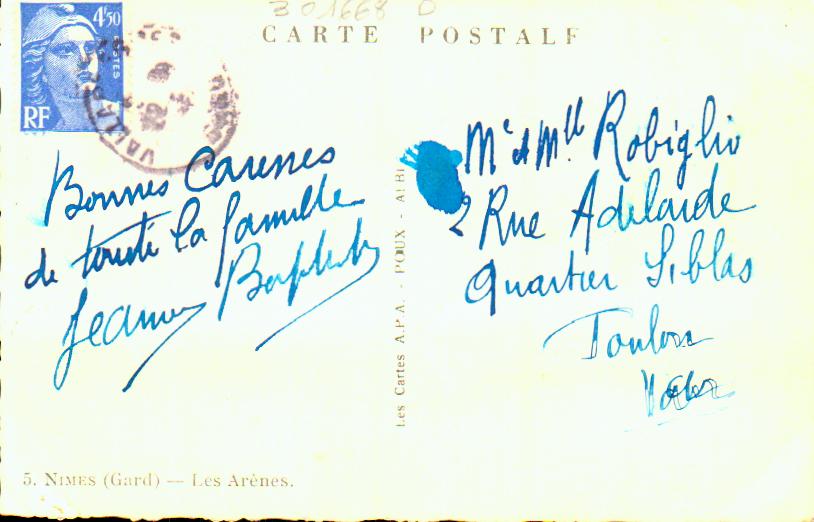 3 01668 0
CARTE POSTALE
4f50
POSTES
RF
Bonnes Caresses
de toute la famille
Jeanne Baptiste
Mr et Mlle Robiglio
2 Rue Adelaide
Quartier Siblas
Toulon
Var
Les Cartes A.P.A. - POUX - ALBI
5. NIMES (Gard) — Les Arènes.